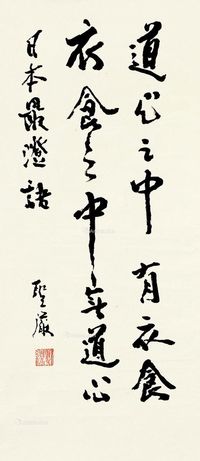 道心之中有衣食
衣食之中無道心
日本最澄語
聖嚴